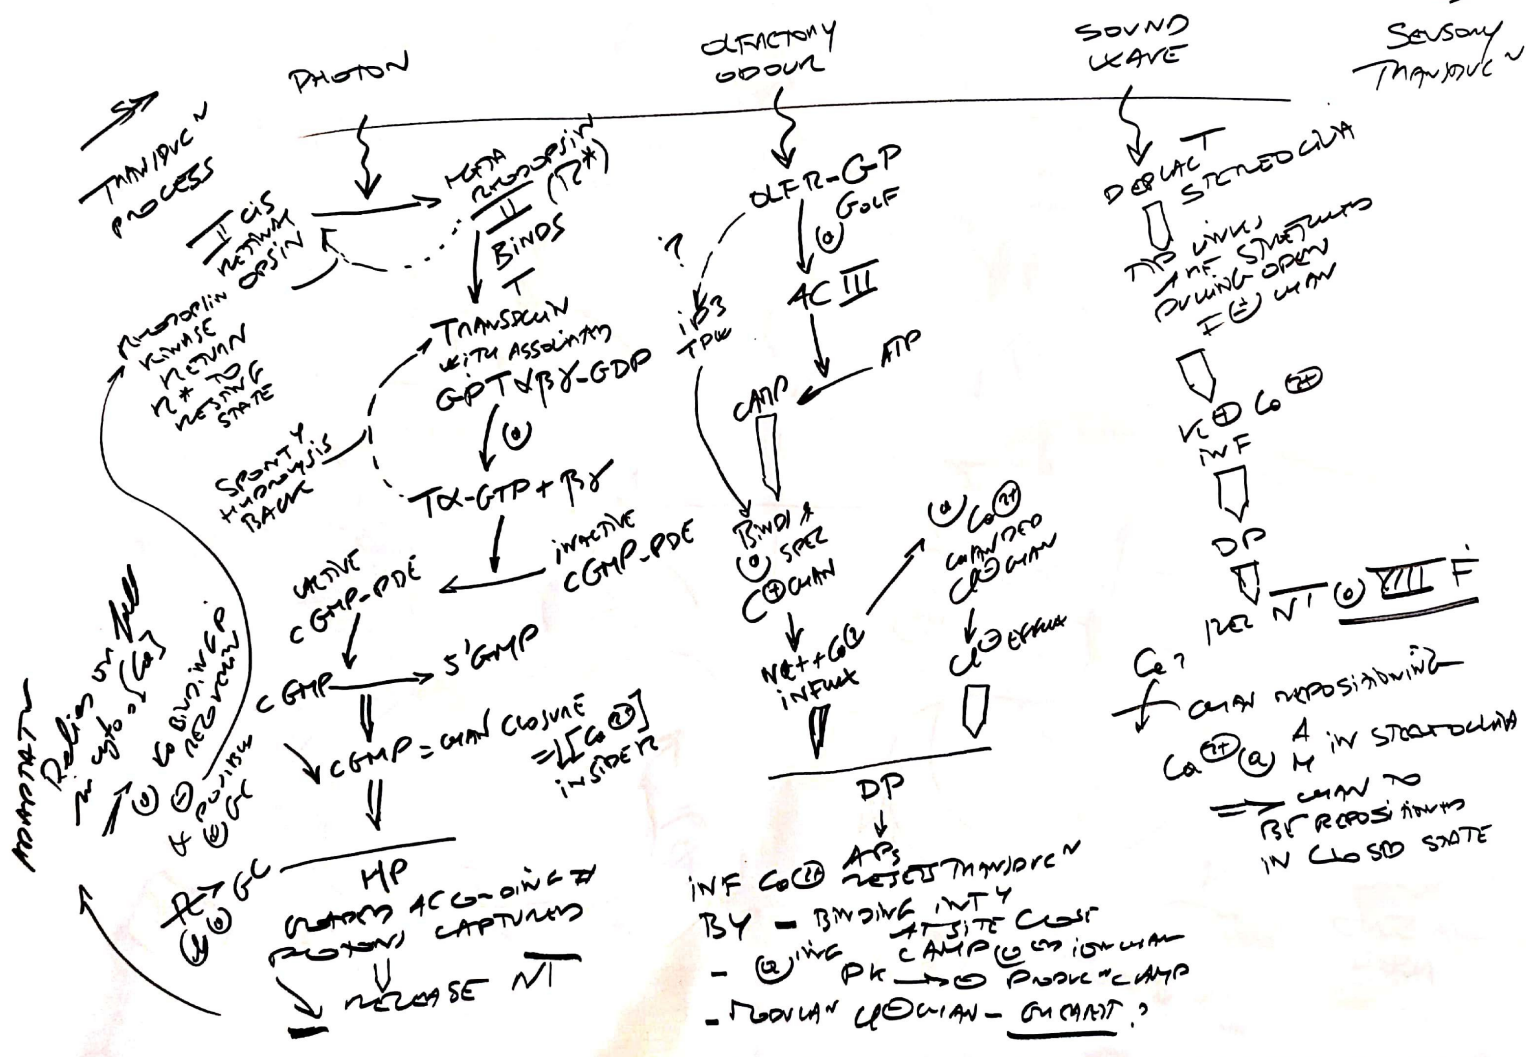 SENSORY
TRANSDUC N
PHOTON
OLFACTORY
ODOUR
SOUND
WAVE
TRANSDUC N
PROCESS
II CIS
RETINAL
OPSIN
META
RHODOPSIN
II (R*)
BINDS
T
TRANSDUCIN
WITH ASSOCIATED
GPTαβγ-GDP
RHODOPSIN
KINASE
RETURN
R* TO
RESTING
STATE
SPONTY
HYDROLYSIS
BACK
Tα-GTP + βγ
ACTIVE
CGMP-PDE
INACTIVE
CGMP-PDE
CGMP
5'GMP
CGMP = CHAN CLOSURE
=↓[Ca2+]
INSIDE R
HP
GRADED ACCORDING #
PHOTONS CAPTURED
RELEASE NT
ADAPTATN
Relies on fall
in cyto of [Ca]
Ca BINDING P
RECOVERIN
GC
GC
OLFR-GP
a GOLF
AC III
ATP
CAMP
?
IP3
TPW
BINDS &
a SPEC
C+ CHAN
Na+ + Ca
INFLUX
a Ca2+
CHANDED
Cl- CHAN
Cl- EFFLUX
DP
APs
INF Ca2+ RESETS TRANSDUC N
BY - BINDING INTY
AT SITE CLOSE
- a ING CAMP a ED ION CHAN
PK → PRODUC N CAMP
- MODULAN Cl- CHAN -
DEPLACT
STEREOCILIA
TIP LINKS
ARE STRETCHED
PULLING OPEN
I + CHAN
K+ Ca2+
INF
DP
REL NT a VIII F
Ca?
CHAN REPOSITIONING
Ca2+ a A M IN STEREOCILIA
⇒ CHAN TO
BE REPOSITIONED
IN CLOSED STATE